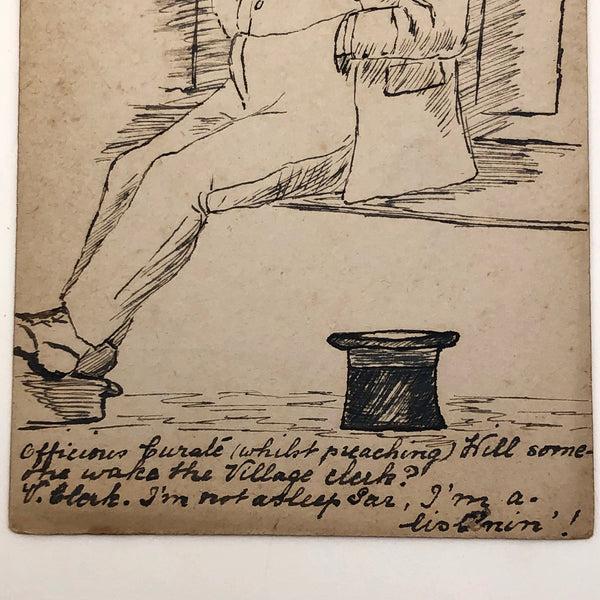 Officious Curate (whilst preaching) Will some-
one wake the Village clerk?
V. Clerk. I'm not asleep Sar, I'm a.
list'nin'!